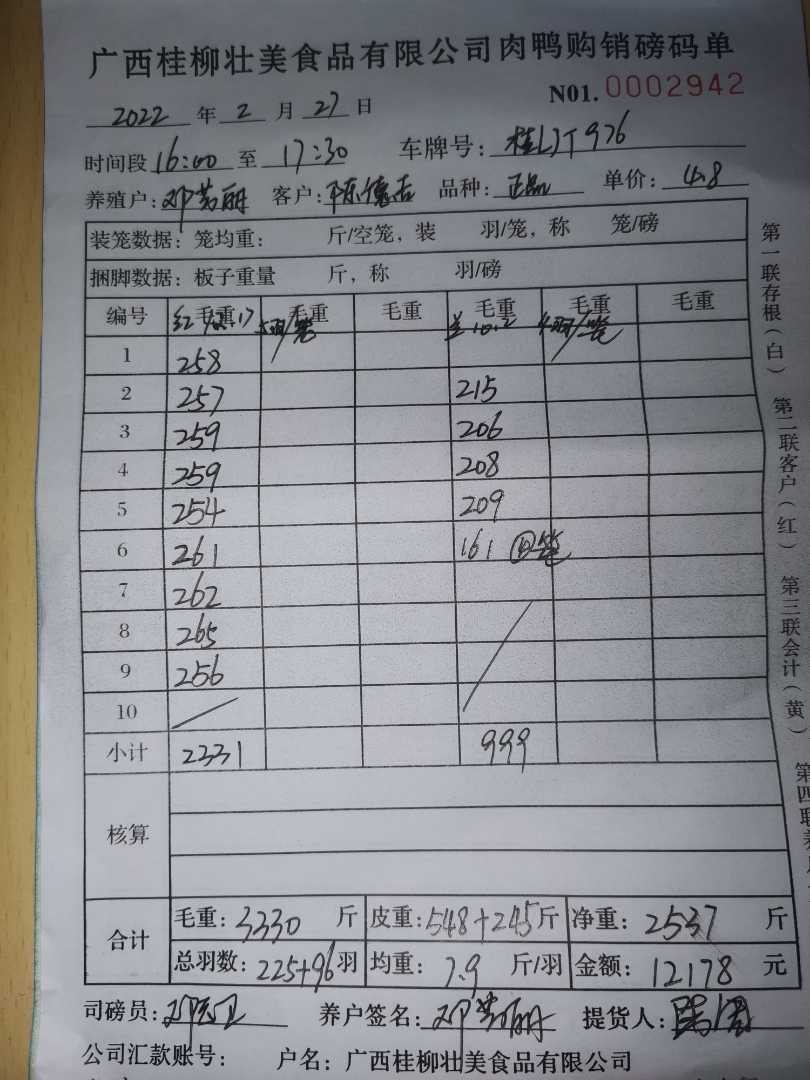 广西桂柳壮美食品有限公司肉鸭购销磅码单
N01.0002942
2022 年 2 月 27 日
时间段 16:00 至 17:30 车牌号: 976
养殖户: 邓 丽 客户: 陈德 品种: 正品 单价: 4.8
装笼数据: 笼均重: 斤/空笼, 装 羽/笼, 称 笼/磅
捆脚数据: 板子重量 斤, 称 羽/磅
编号 毛重 毛重 毛重 毛重 毛重 毛重
红 5羽/笼 10.2 4羽/笼
1 258
2 257 215
3 259 206
4 259 208
5 254 209
6 261 161 笼
7 262
8 265
9 256
10
小计 2331 999
核算
合计
毛重: 3330 斤 皮重: 548+245 斤 净重: 2537 斤
总羽数: 225+96 羽 均重: 7.9 斤/羽 金额: 12178 元
司磅员: 邓 卫 养户签名: 邓 丽 提货人:
公司汇款账号: 户名: 广西桂柳壮美食品有限公司
第一联存根(白)
第二联客户(红)
第三联会计(黄)
第四联养